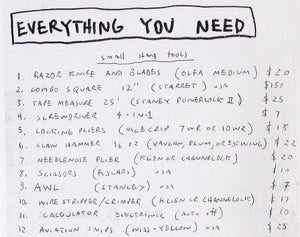 EVERYTHING YOU NEED
SMALL HAND TOOLS
1. RAZOR KNIFE AND BLADES (OLFA MEDIUM) $20
2. COMBO SQUARE 12" (STARRET) USA $150
3. TAPE MEASURE 25' (STANEY POWERLOCK II) $25
4. SCREWDRIVER 4-IN-1 $7
5. LOCKING PLIERS (VICEGRIP 7WR OR 10WR) $18
6. CLAW HAMMER 16 OZ (VAUGHN, PLUM, OR ESTWING) $22
7. NEEDLENOSE PLIER (KLIEN OR CHANNELOCK) $20
8. SCISSORS (FISCARS) USA $10
9. AWL (STANLEY) USA $7
10. WIRE STRIPPER/CRIMPER (KLIEN OR CHANELOCK) $17
11. CALCULATOR ELECTRONIC (AUTO OFF) $10
12. AVIATION SNIPS (WISS-YELLOW) USA $25